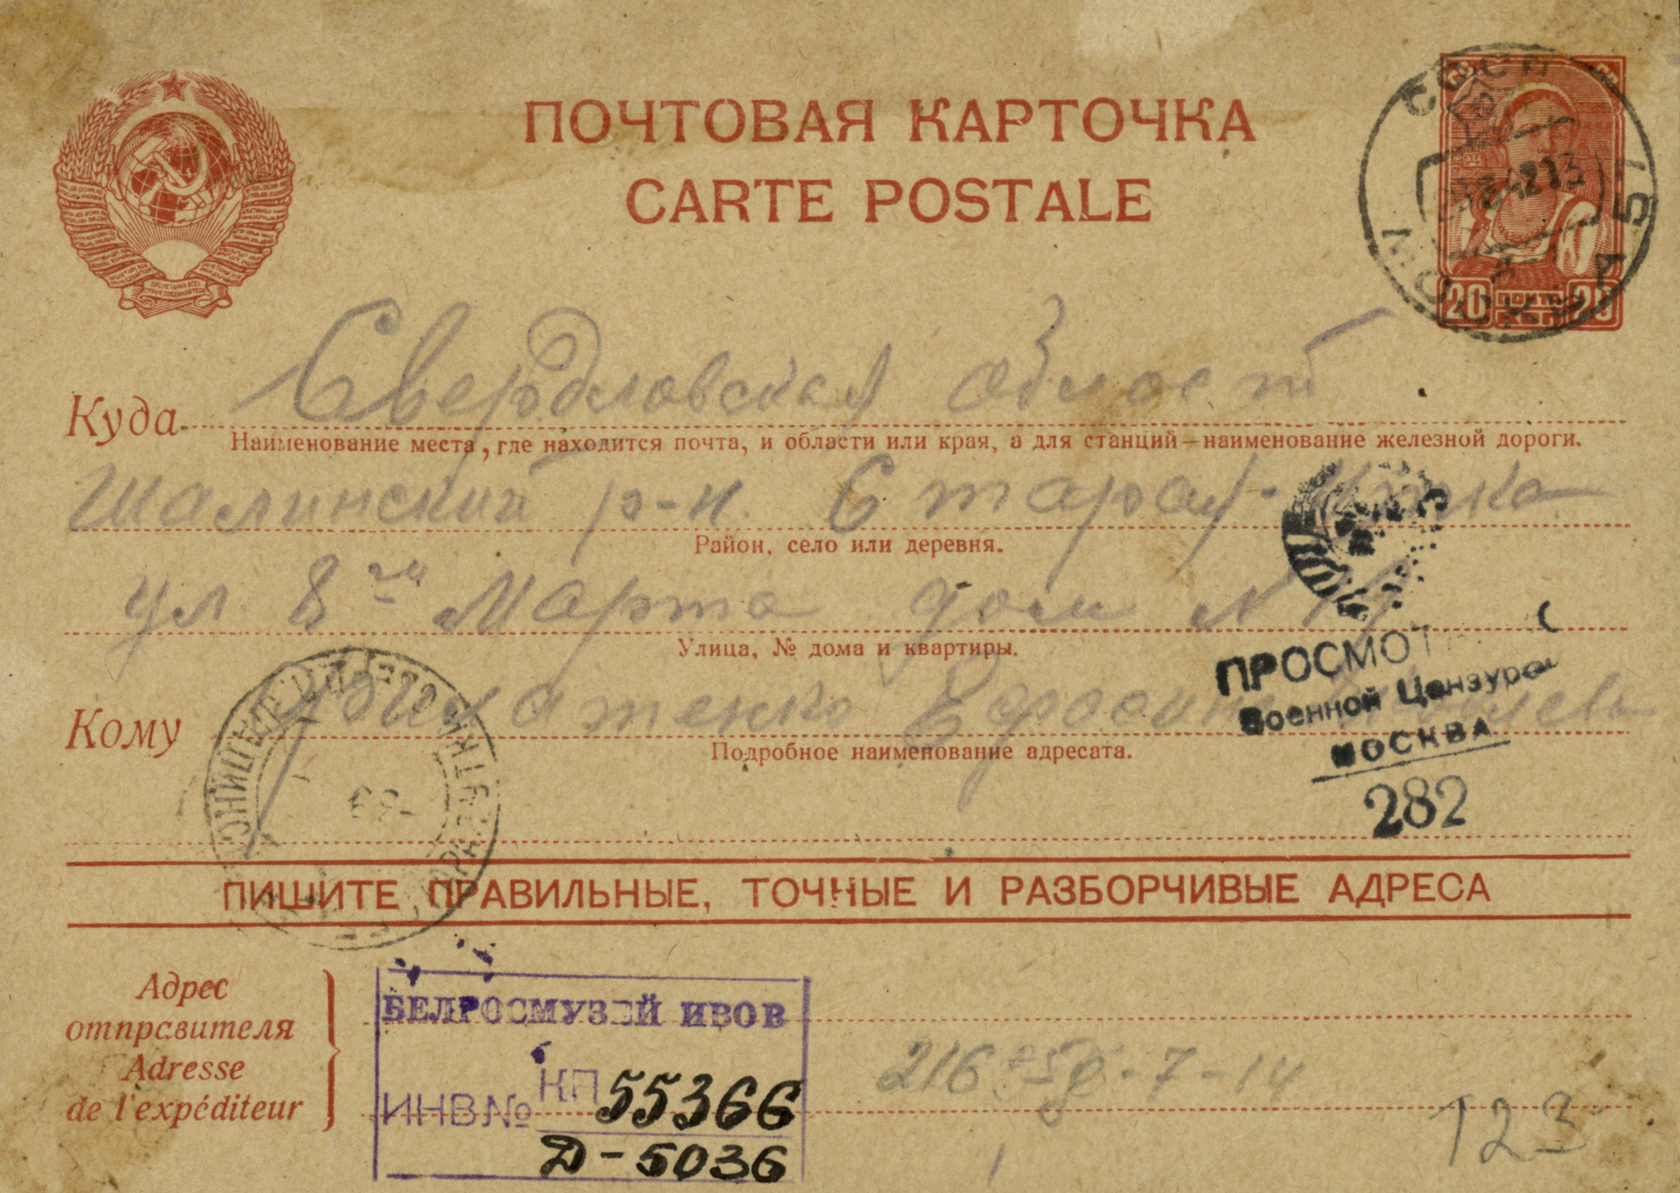 ПОЧТОВАЯ КАРТОЧКА
CARTE POSTALE
СССР
МОСКВА
20 ПОЧТА 20
КОП.
Свердловская област
Куда
Наименование места, где находится почта, и области или края, а для станций — наименование железной дороги.
Шалинский р-н. Старая-Утка
Район, село или деревня.
ул. 8го Марта дом N
Улица, № дома и квартиры.
ПРОСМОТ
Военной Цензурой
МОСКВА
282
Кому
Игнатенко
Подробное наименование адресата.
ПИШИТЕ ПРАВИЛЬНЫЕ, ТОЧНЫЕ И РАЗБОРЧИВЫЕ АДРЕСА
Адрес
отправителя
Adresse
de l'expéditeur
БЕЛРОСМУЗЕЙ ИВОВ
ИНВ№ КП 55366
Д-5036
123